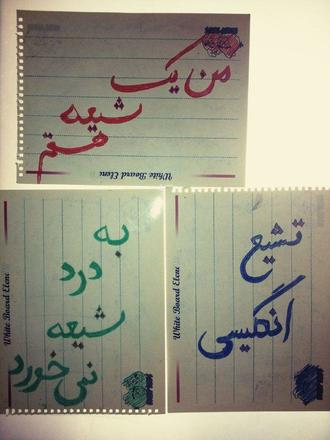 من یک
شیعه
هستم
White Board Elenc
تشیع
انگلیسی
White Board Elenc
به
درد
شیعه
نمی‌خورد
White Board Elenc